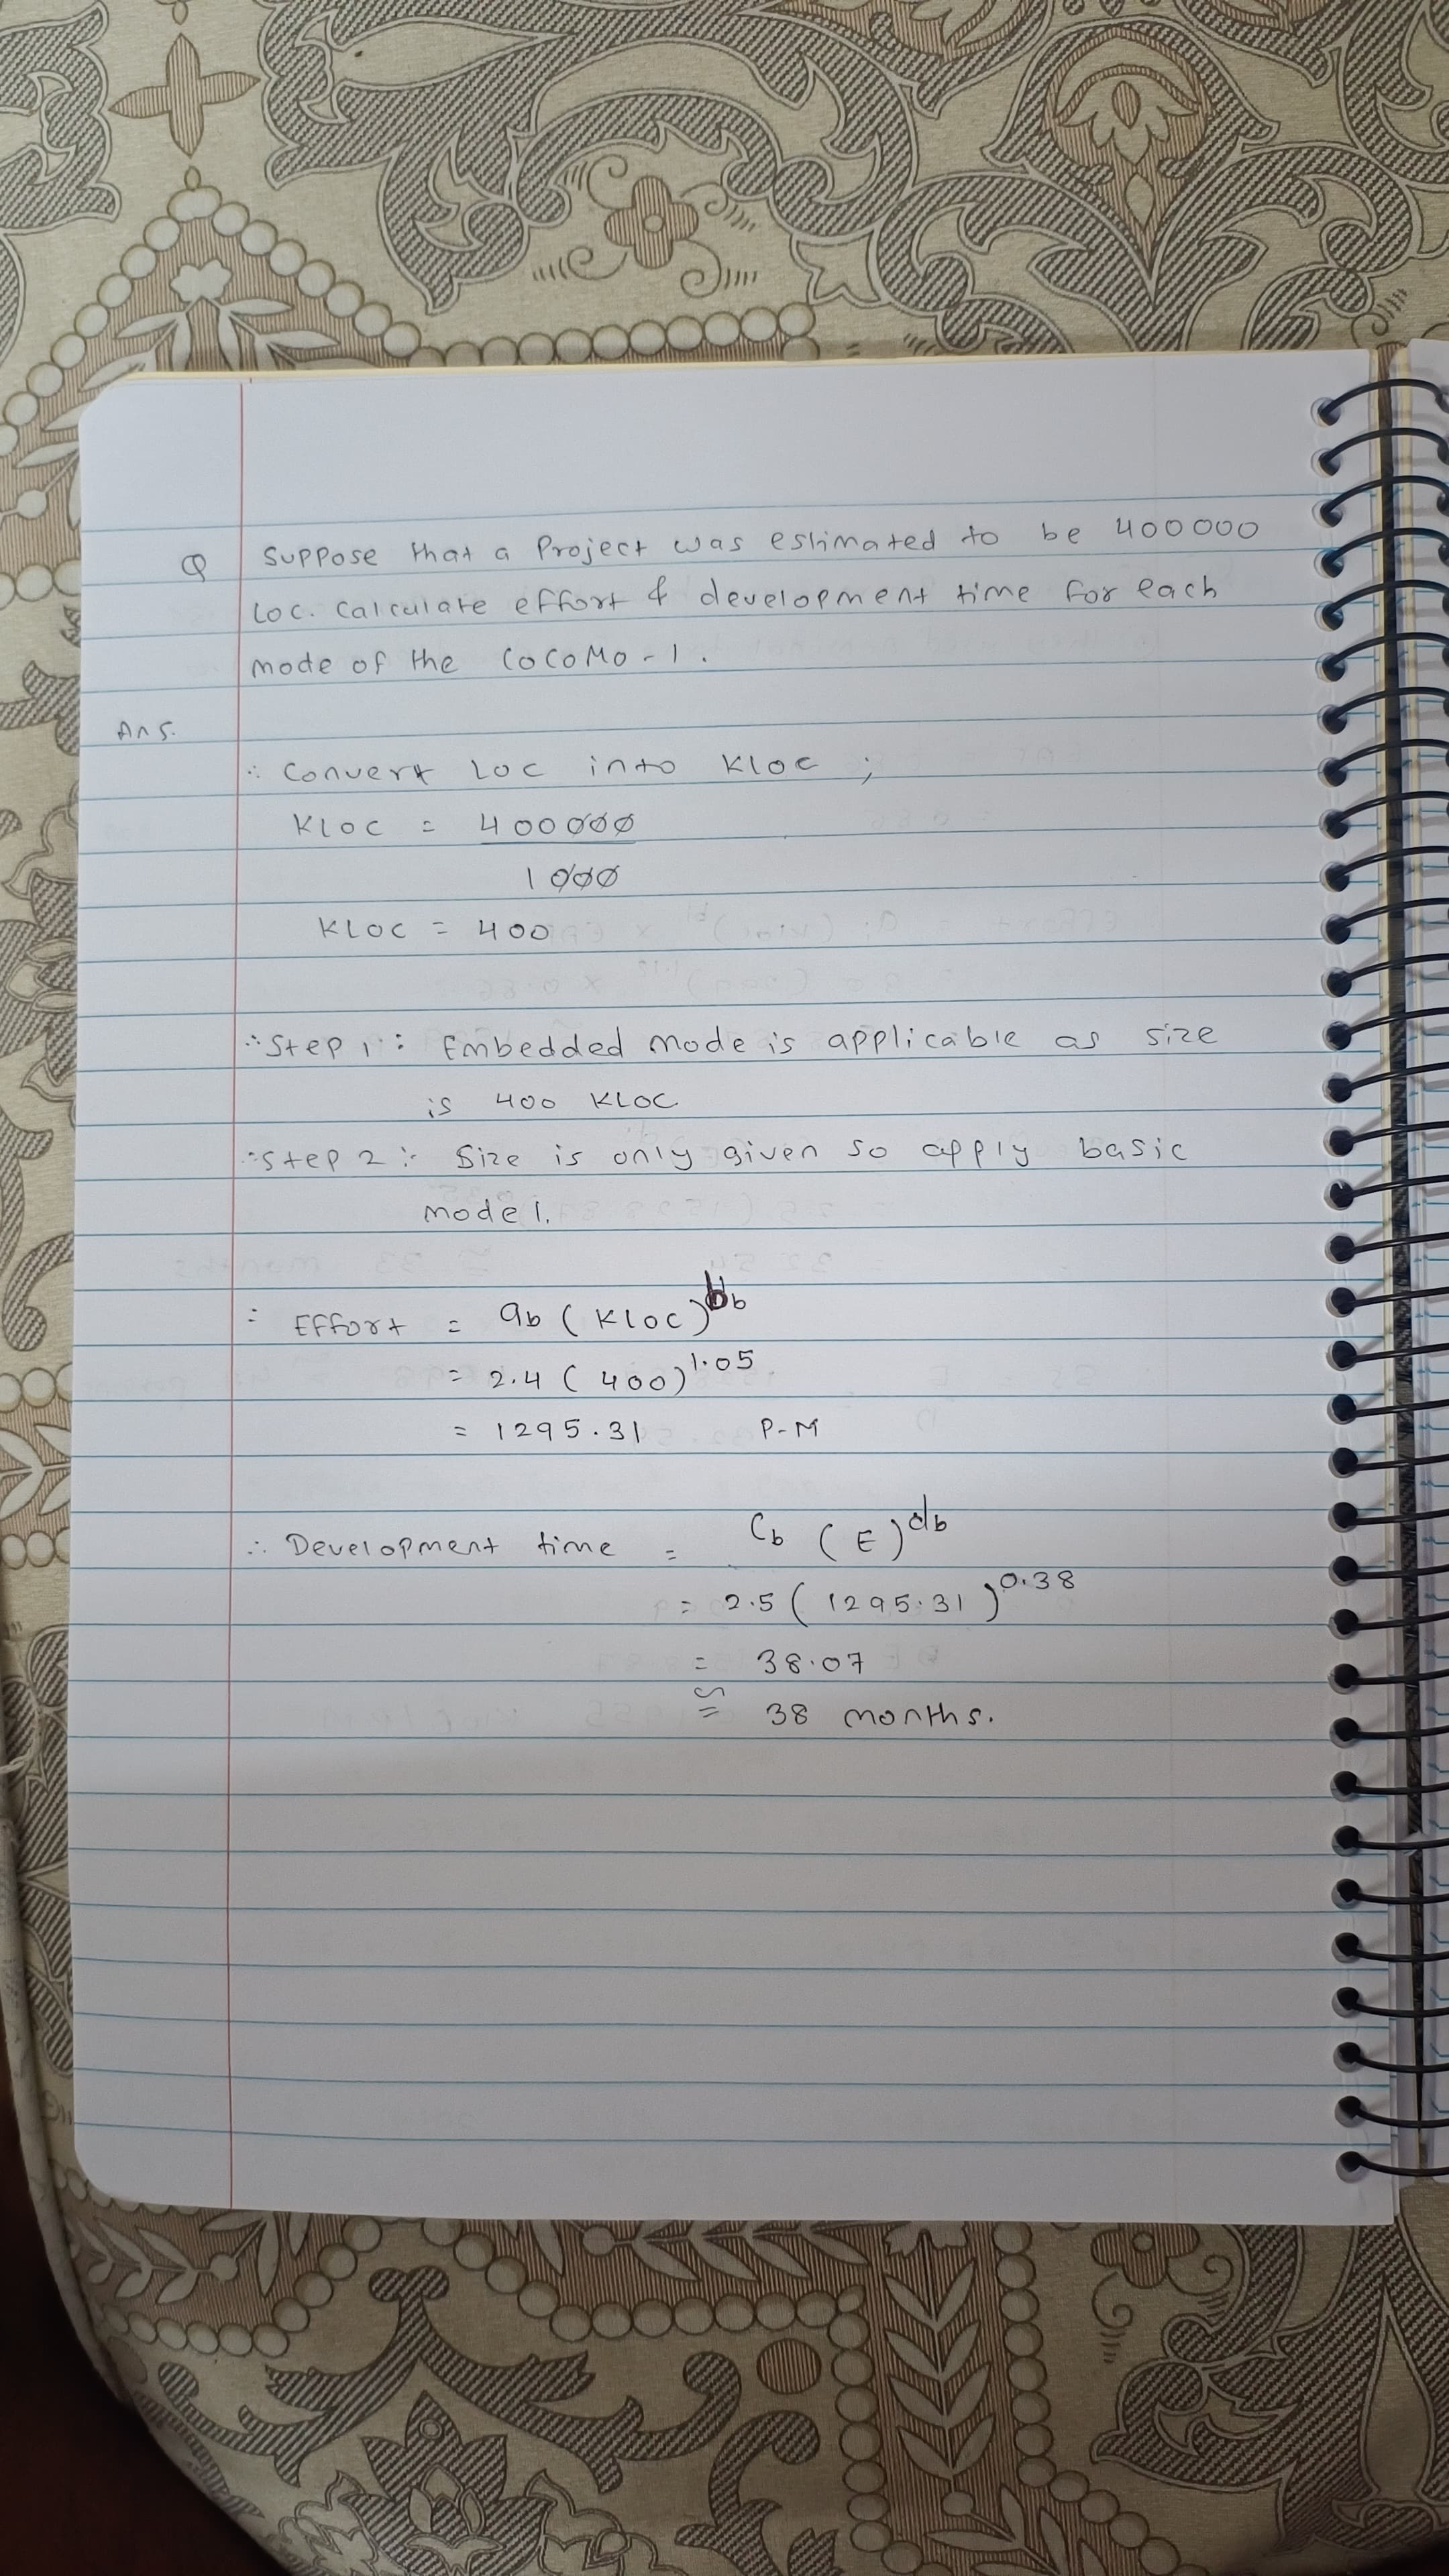 Q Suppose that a Project was estimated to be 400000
LOC. Calculate effort & development time for each
mode of the COCOMO-1.
Ans.
∴ Convert LOC into KLOC ;
KLOC = 400000
1000
KLOC = 400
∴ Step 1 : Embedded mode is applicable as size
is 400 KLOC
∴ Step 2 : Size is only given so apply basic
model.
∴ Effort = ab (KLOC)^bb
= 2.4 (400)^1.05
= 1295.31 P-M
∴ Development time = Cb (E)^db
= 2.5 (1295.31)^0.38
= 38.07
≅ 38 months.